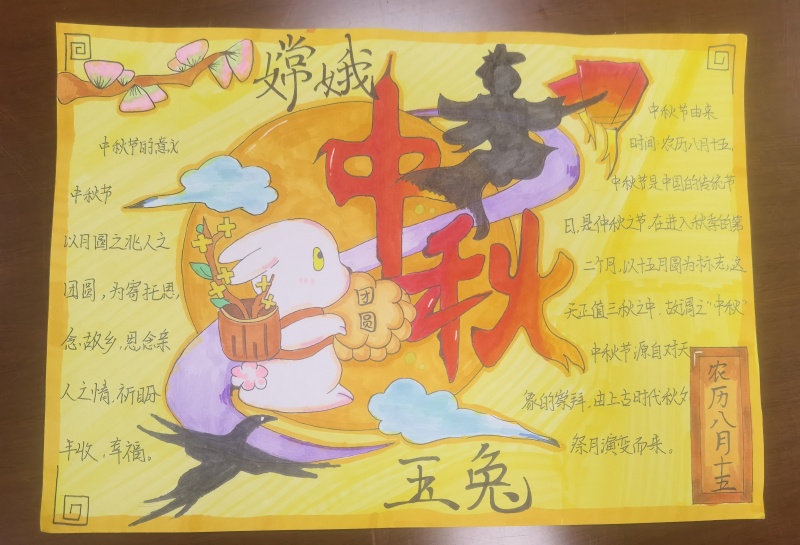 嫦娥
中秋
玉兔
团圆
中秋节的意义
中秋节
以月圆之兆人之
团圆，为寄托思，
念故乡，思念亲
人之情，祈盼
年收，幸福。
中秋节由来
时间 农历八月十五
中秋节是中国的传统节
日，是仲秋之节，在进入秋季的第
二个月，以十五月圆为标志，这
天正值三秋之中，故谓之"中秋"
中秋节源自对天
象的崇拜，由上古时代秋夕
祭月演变而来。
农历八月十五